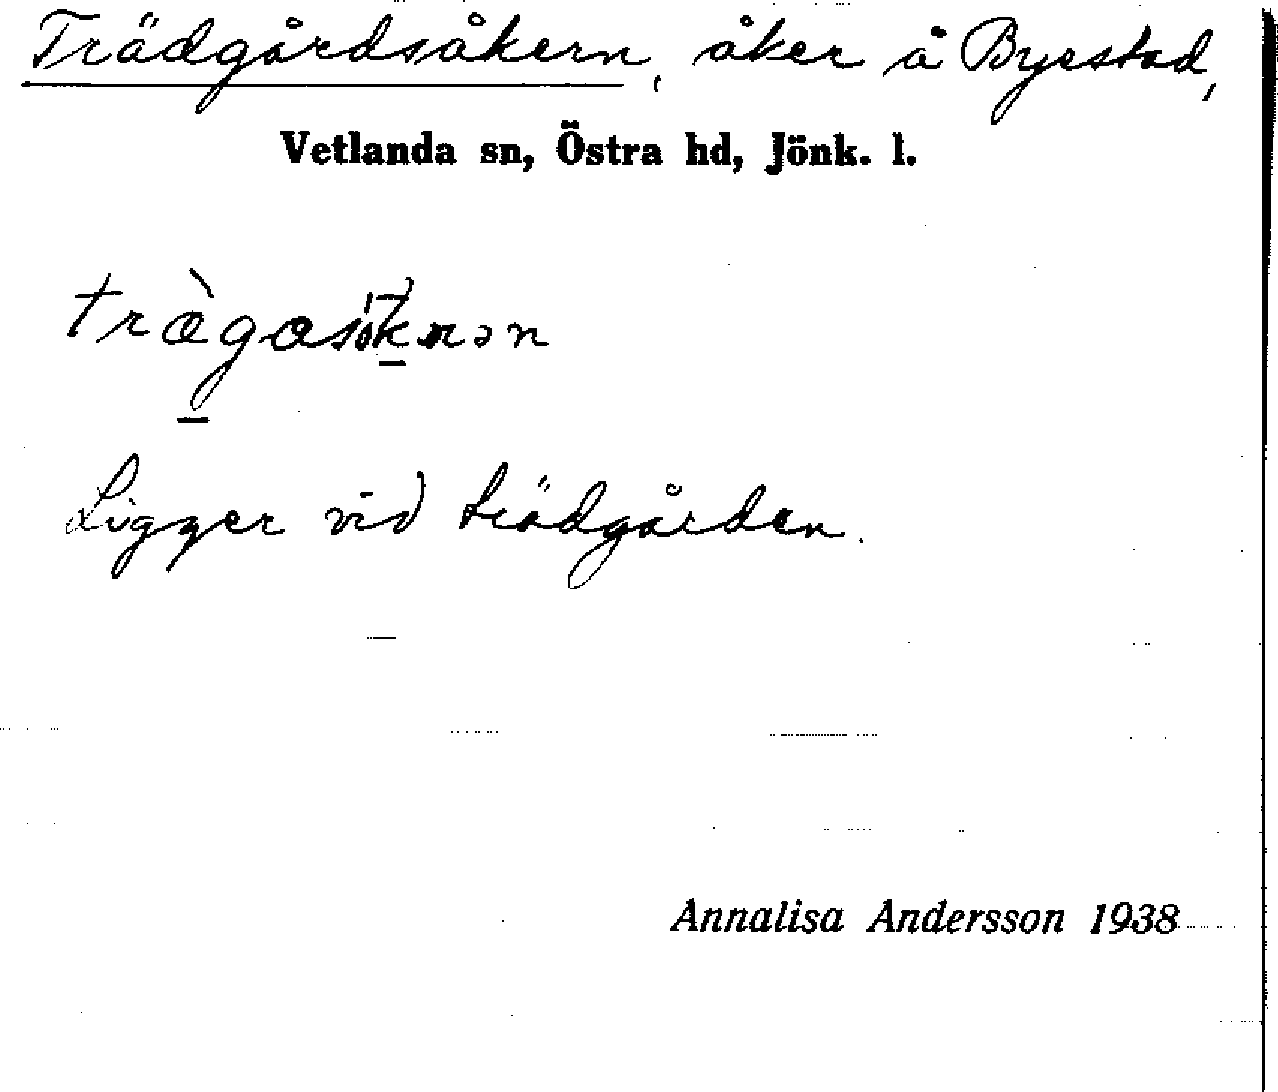 Trädgårdsåkern, åker å Byestad,
Vetlanda sn, Östra hd, Jönk. l.
Ligger vid trädgården.
Annalisa Andersson 1938